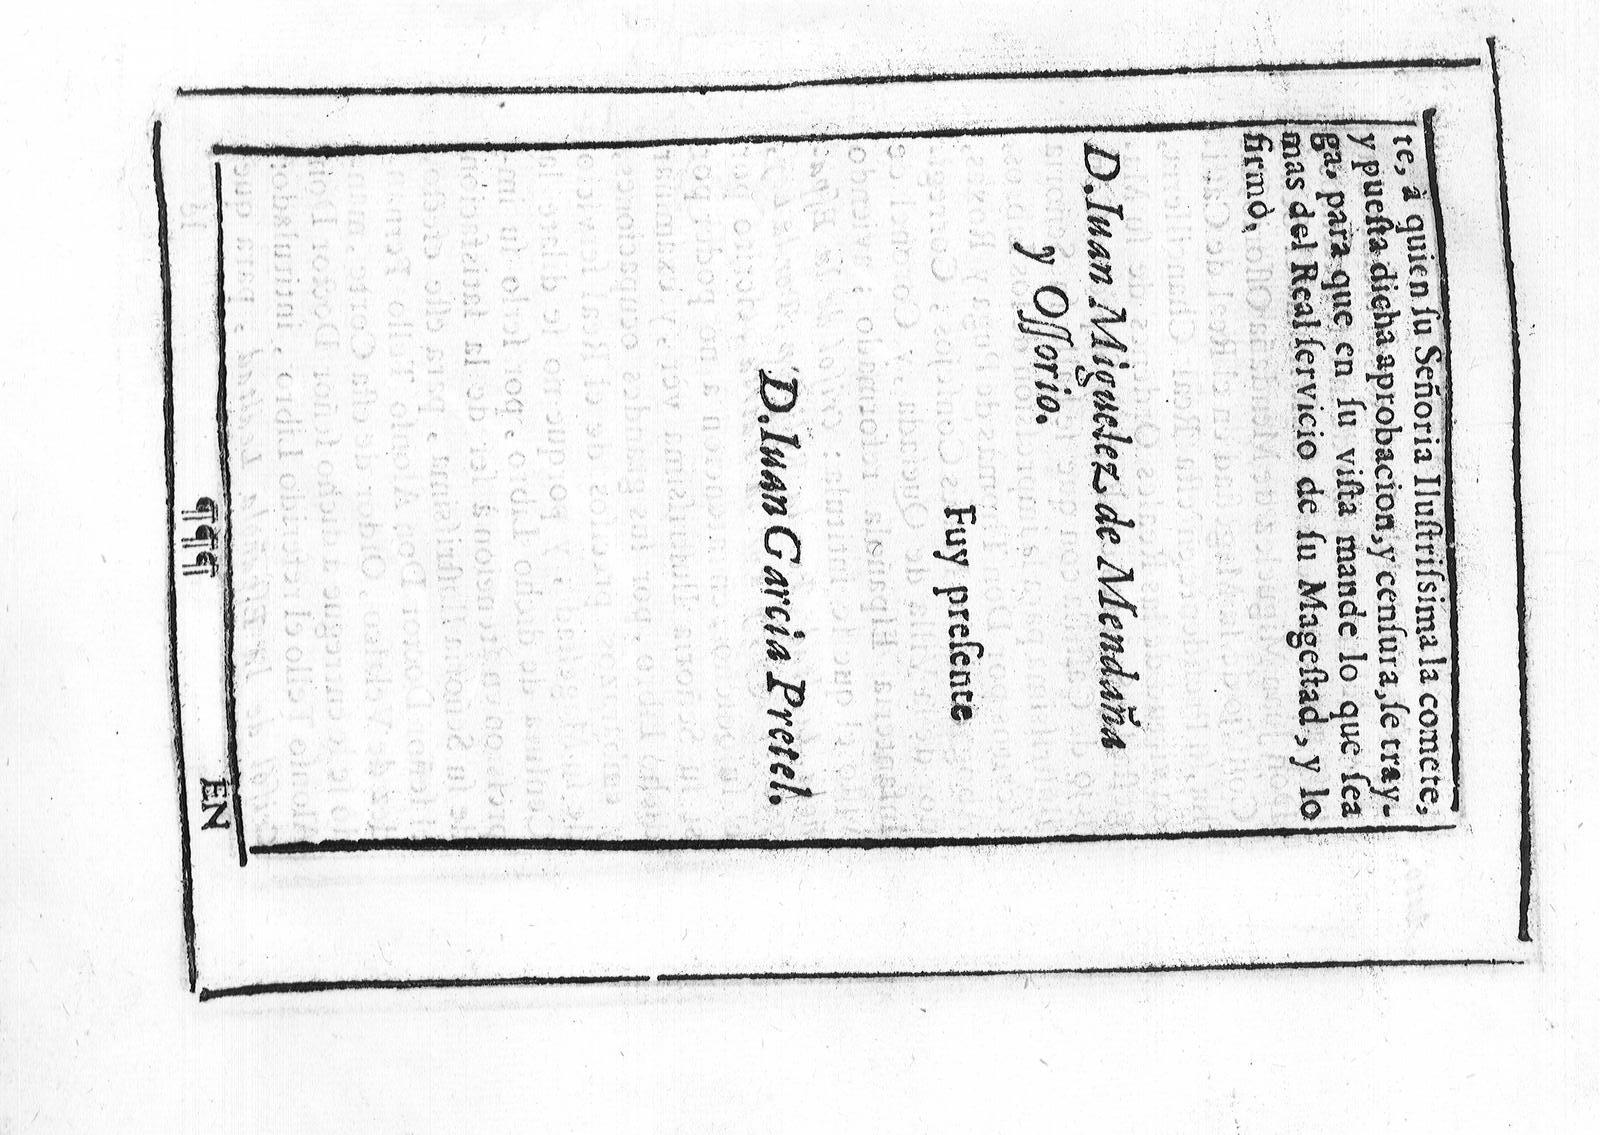 te, à quien ſu Señoria Iluſtriſsima la comete,
y pueſta dicha aprobacion, y cenſura, ſe tray-
ga, para que en ſu viſta mande lo que ſea
mas del Real ſervicio de ſu Mageſtad, y lo
firmò,
D. Iuan Miguelez de Mendaña
y Oſſorio.
Fuy preſente
D. Iuan Garcia Pretel.
¶¶¶ EN